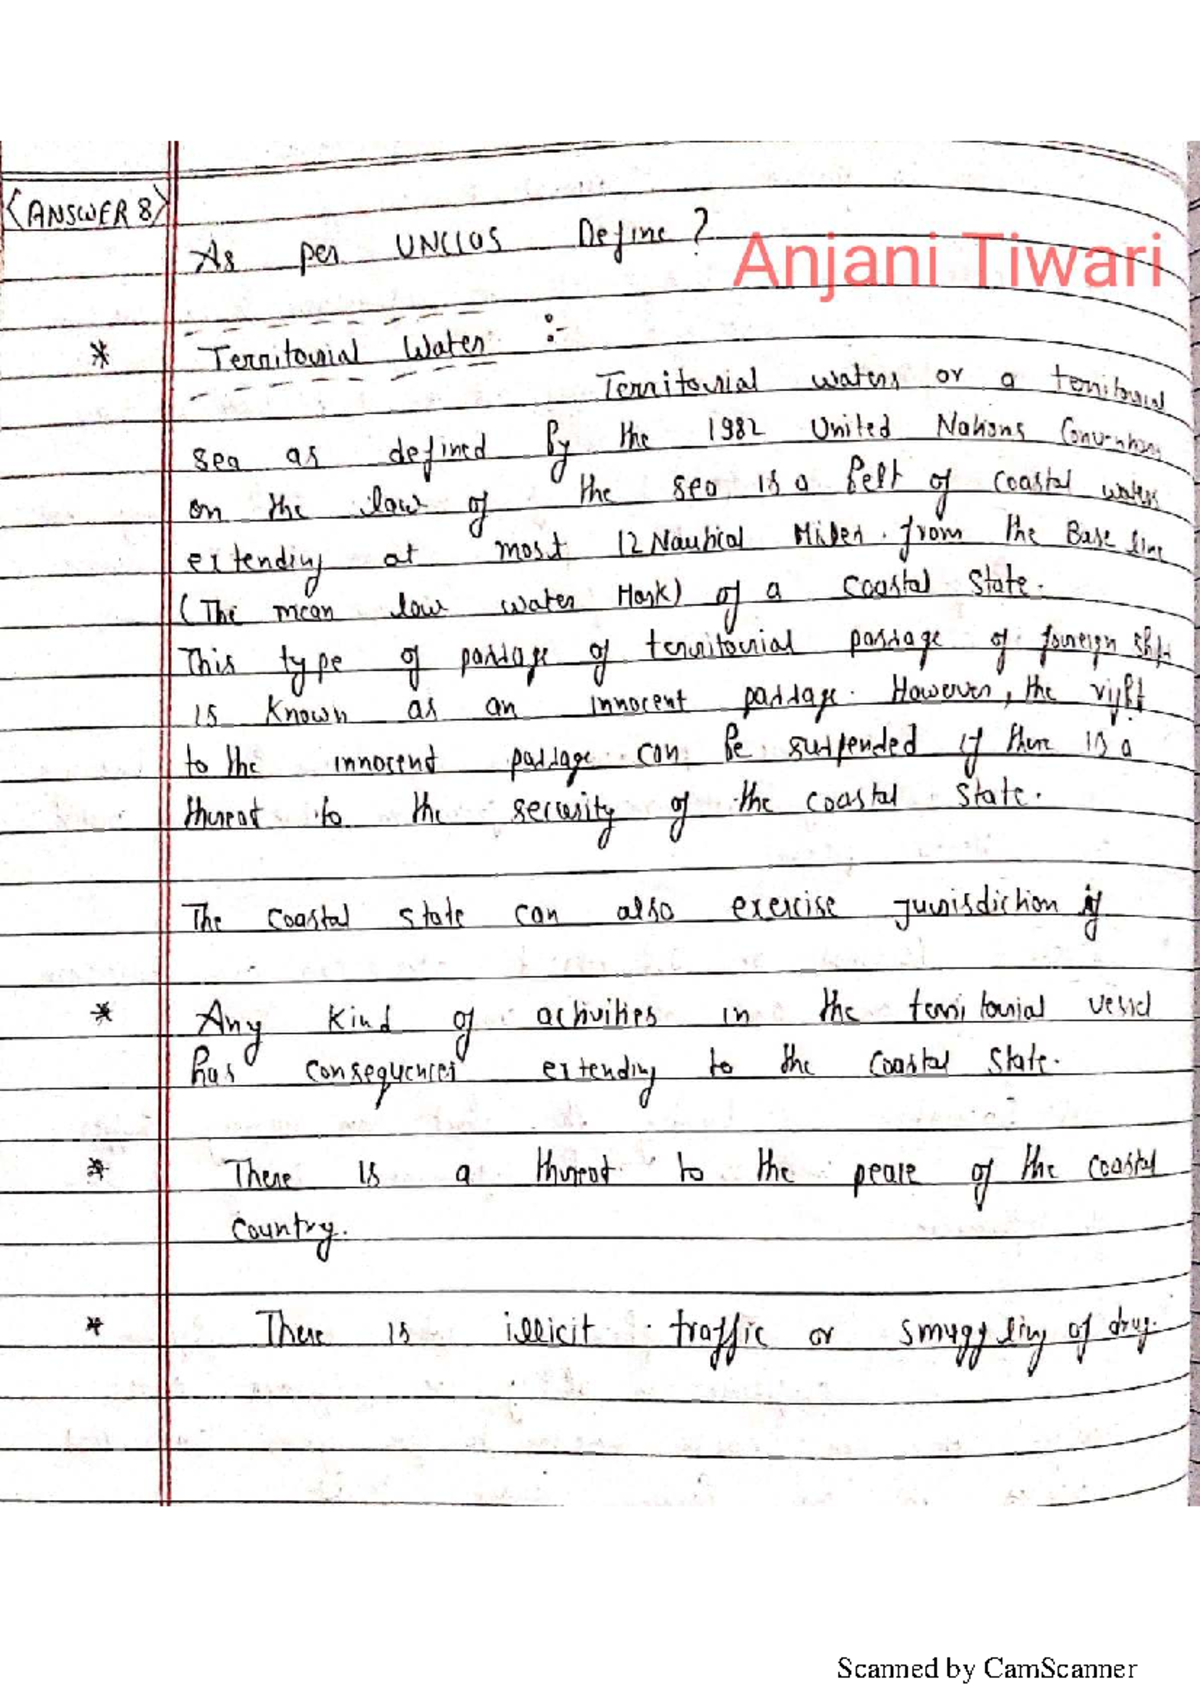 <ANSWER 8>
As per UNCLOS Define ?
Anjani Tiwari
* Territorial Water :-
Territorial waters or a territorial
sea as defined by the 1982 United Nations Convention
on the law of the sea is a belt of coastal waters
extending at most 12 Nautical Miles from the Base line
(The mean low water Mark) of a coastal State.
This type of passage of territorial passage of foreign ships
is known as an innocent passage. However, the right
to the innocent passage can be suspended if there is a
threat to the security of the coastal state.
The coastal state can also exercise jurisdiction if
* Any kind of activities in the territorial vessel
has consequences extending to the coastal State.
* There is a threat to the peace of the coastal
country.
* There is illicit traffic or smuggling of drug.
Scanned by CamScanner